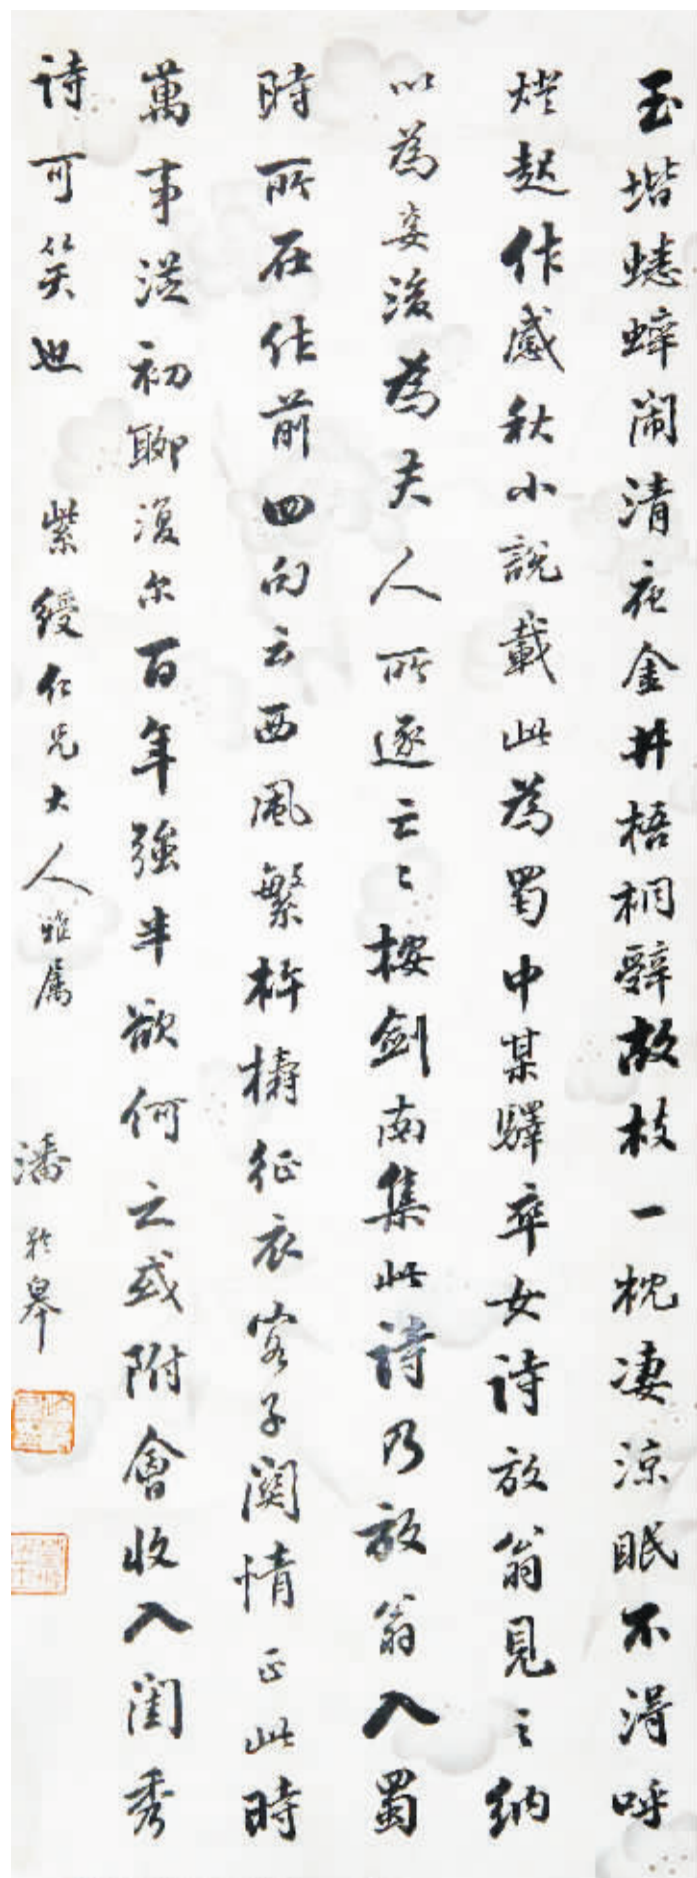 玉堦蟋蟀鬧清夜金井梧桐辭故枝一枕凄涼眠不得呼
燈起作感秋小說載此為蜀中某驛卒女詩放翁見之納
以為妾後為夫人所逐云〻按劍南集此詩乃放翁入蜀
時所在作前四句云西風繁杵檮征衣客子関情正此時
萬事從初聊復尔百年強半欲何之或附會收入閨秀
詩可笑也
紫綬仁兄大人雅屬
潘齡皋